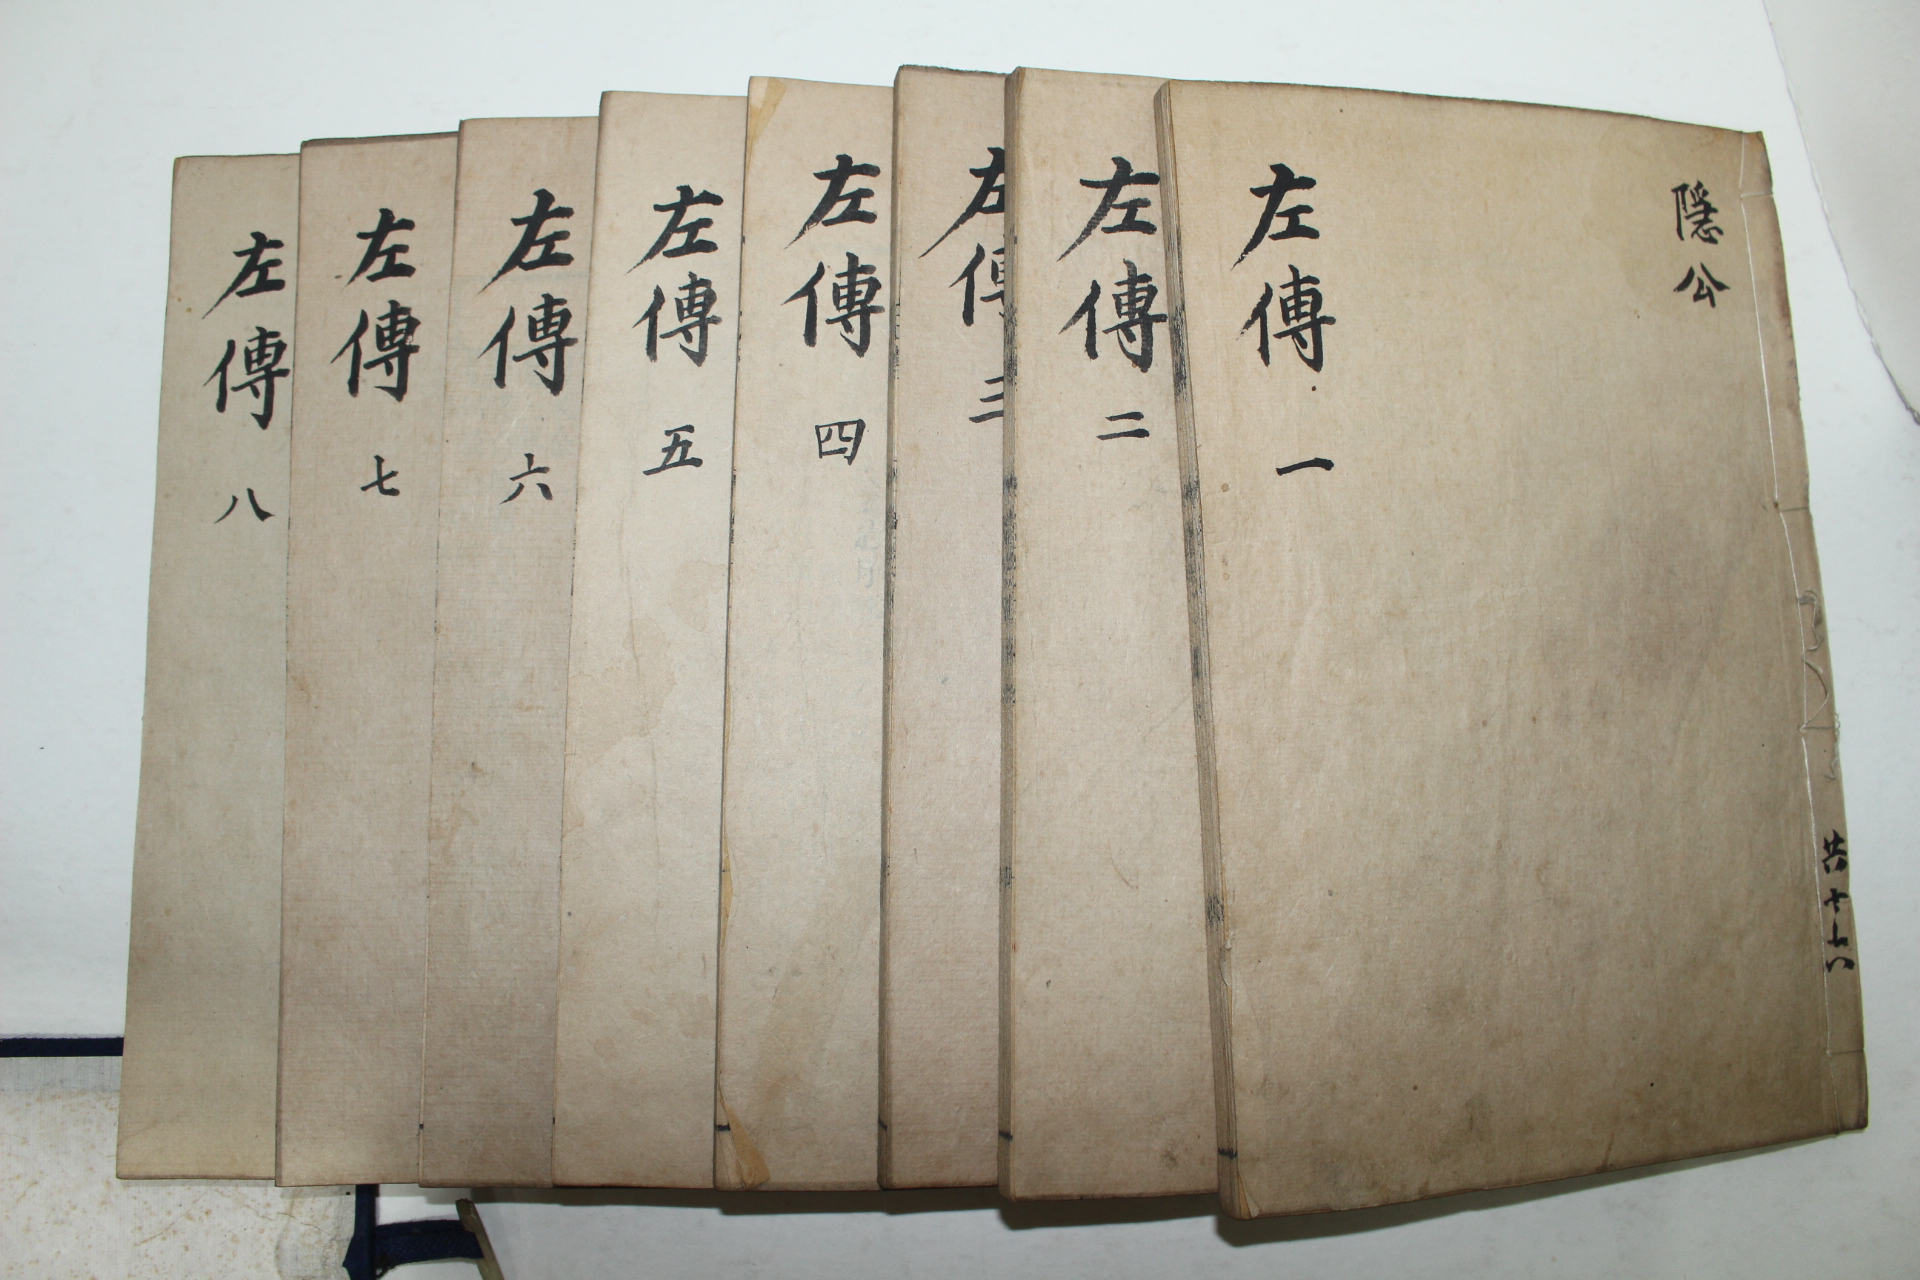 隱公
共十六
左傳 一
左傳 二
左傳 三
左傳 四
左傳 五
左傳 六
左傳 七
左傳 八